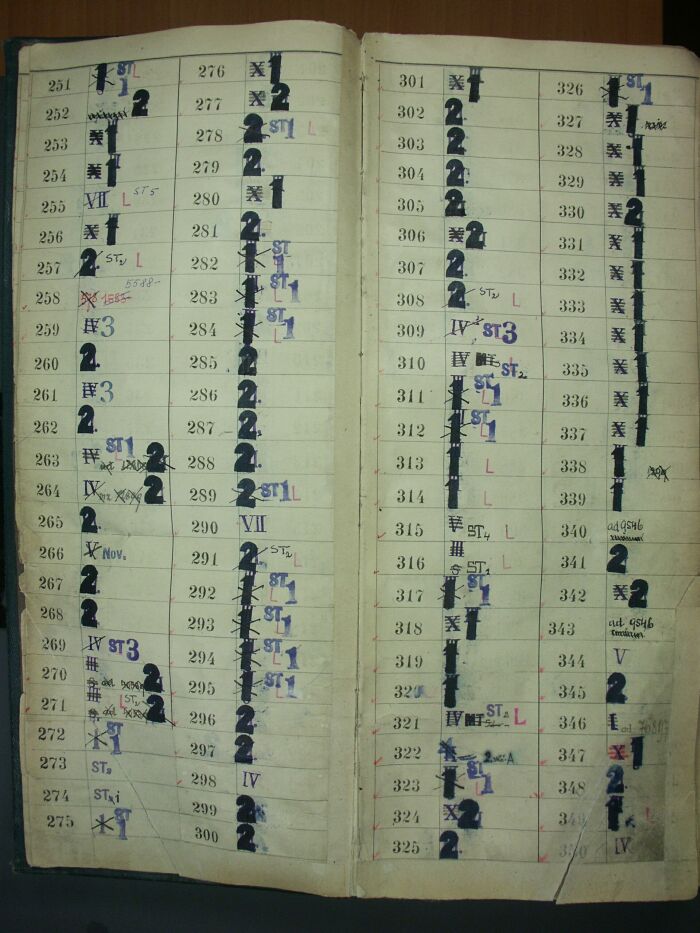 251 1 ST L 1
252 2
253 X 1
254 X 1
255 VII L ST5
256 X 1
257 2. ST2 L
258 1583 5588-
259 IV 3
260 2.
261 IV 3
262 2.
263 IV ST1 2
264 IV 2
265 2.
266 V Nov.
267 2.
268 2.
269 IV ST3
270 III 2
271 III L ST2 2
272 1 ST 1
273 ST2
274 ST
275 ST 1
276 X 1
277 X 2
278 2 ST1 L
279 2.
280 X 1
281 2.
282 1 ST L 1
283 1 ST L 1
284 1 ST L 1
285 2
286 2.
287 2.
288 2.
289 2 ST1 L
290 VII
291 2. ST2 L
292 1 ST L 1
293 1 ST L 1
294 1 ST L 1
295 1 ST L 1
296 2.
297 2.
298 IV
299 2.
300 2.
301 X 1
302 2.
303 2.
304 2.
305 2.
306 X 2.
307 2.
308 2. ST2 L
309 IV ST3
310 IV L ST2
311 1 ST L 1
312 1 ST L 1
313 1 L
314 1 L
315 V ST4 L
316 III ST1 L
317 1 ST L 1
318 X 1
319 1
320 1
321 IV ST2 L
322 X
323 1 ST L 1
324 X 2
325 2.
326 1 ST L 1
327 X 1
328 X 1
329 X 1
330 X 2
331 X 1
332 X 1
333 X 1
334 X 1
335 X 1
336 X 1
337 X 1
338 1
339 1
340 ad 9546
341 2
342 X 2
343 ad 9546
344 V
345 2
346 I ad
347 X 1
348 2.
349 1. L
350 IV